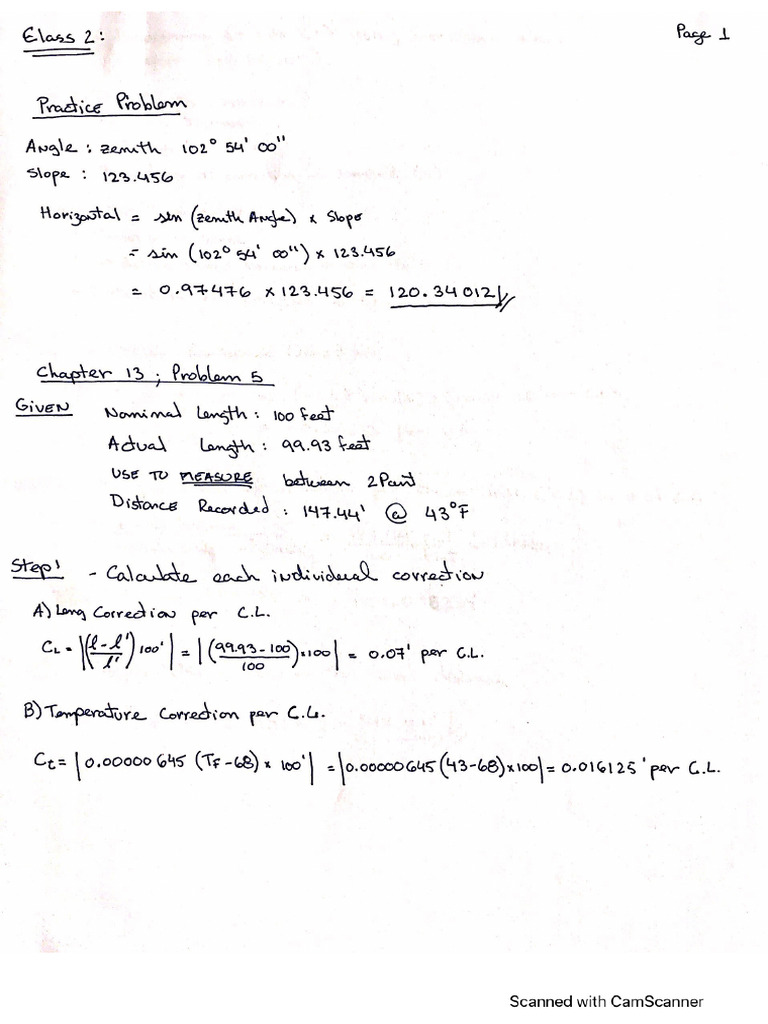 Class 2:
Page 1
Practice Problem
Angle : zenith 102° 54' 00"
Slope : 123.456
Horizontal = sin (zenith Angle) x Slope
= sin (102° 54' 00") x 123.456
= 0.97476 x 123.456 = 120.34012
Chapter 13 ; Problem 5
GIVEN Nominal Length : 100 feet
Actual Length : 99.93 feet
USE TO MEASURE between 2 Point
Distance Recorded : 147.44' @ 43°F
Step 1 - Calculate each individual correction
A) Long Correction per C.L.
CL = |((l - l')/l') 100'| = |((99.93 - 100)/100) x 100| = 0.07' per C.L.
B) Temperature Correction per C.L.
Ct = |0.00000645 (TF - 68) x 100'| = |0.00000645 (43 - 68) x 100| = 0.016125' per C.L.
Scanned with CamScanner